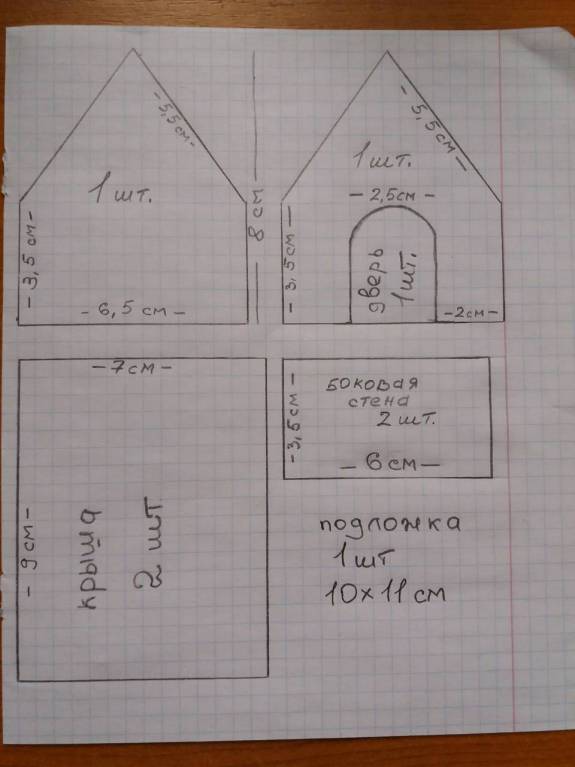 - 5,5 см -
1 шт.
- 3,5 см -
- 6,5 см -
— 8 см —
- 5,5 см —
1 шт.
— 2,5см —
- 3,5см —
дверь
1 шт.
-2см-
-7см-
- 9 см -
крыша
2 шт
боковая
стена
2 шт.
- 3,5см -
— 6 см —
подложка
1 шт
10 x 11 см